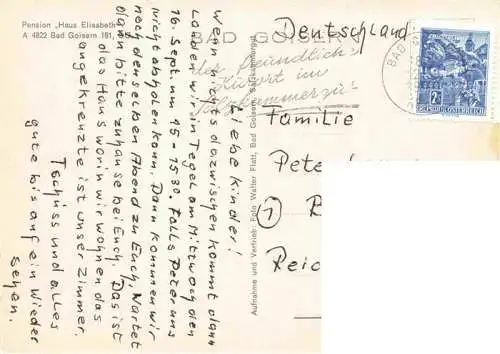 Pension „Haus Elisabeth"
A 4822 Bad Goisern 161,
BAD GOISERN
der freundliche
Kurort im
Salzkammergut
BAD
2 S
REPUBLIK ÖSTERREICH
Deutschland
Familie
Peter
1
R
Reic
Aufnahme und Vertrieb: Foto Walter Flatt, Bad Goisern, Salzkammergut
Liebe Kinder!
Wenn nichts dazwischen kommt dann
Landen wir in Tegel am Mittwoch den
16. Sept. um 15-15³⁰. Falls Peter uns
nicht abholen kann, Dann kommen wir
noch denselben Abend zu Euch. Wartet
dann bitte zuhause bei Euch. Das ist
das Haus worin wir wohnen das
angekreuzte ist unser Zimmer.
Tschüss und alles
gute bis auf ein Wieder
sehen.